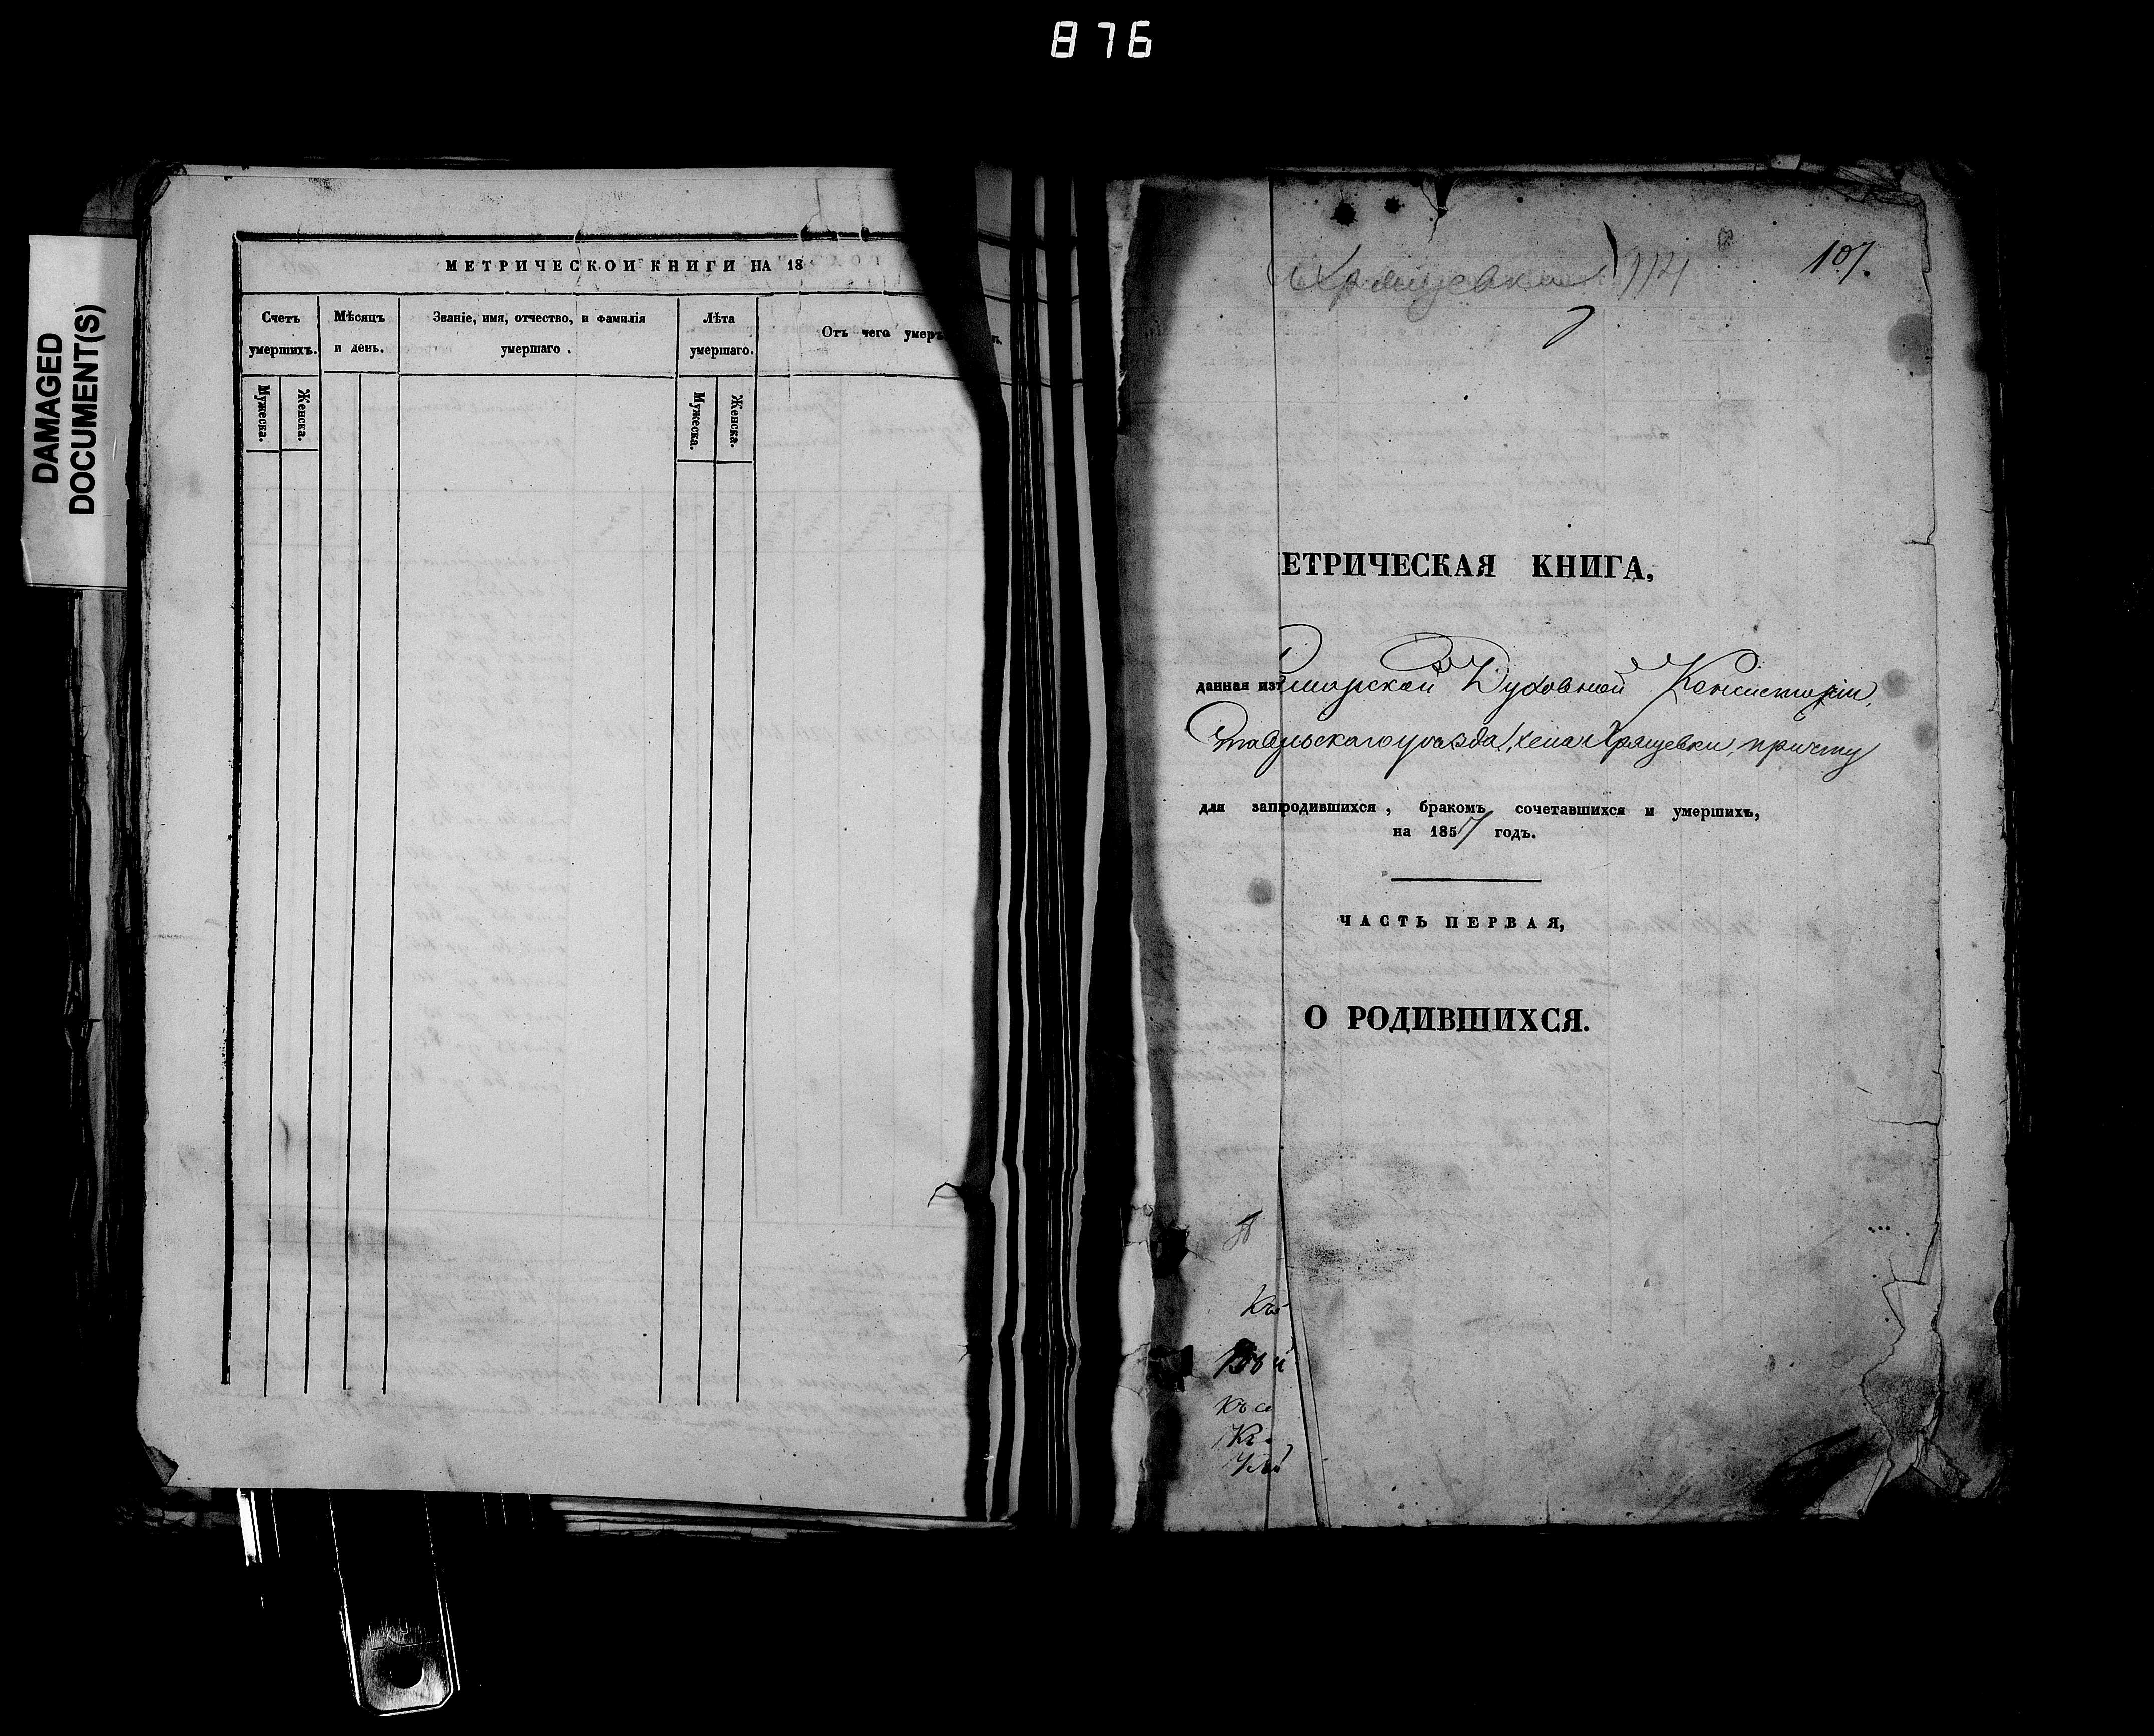 876
DAMAGED
DOCUMENT(S)
МЕТРИЧЕСКОЙ КНИГИ НА 18
Счетъ умершихъ.
Мѣсяцъ и день.
Званіе, имя, отчество, и фамилія умершаго.
Лѣта умершаго.
Отъ чего умеръ
Мужеска.
Женска.
Мужеска.
Женска.
107.
ЕТРИЧЕСКАЯ КНИГА,
данная изъ марской Духовной Консисторіи,
Ставропольскаго уѣзда, села Хрящевки, причту
для запродившихся, бракомъ сочетавшихся и умершихъ,
на 1857 годъ.
ЧАСТЬ ПЕРВАЯ,
О РОДИВШИХСЯ.